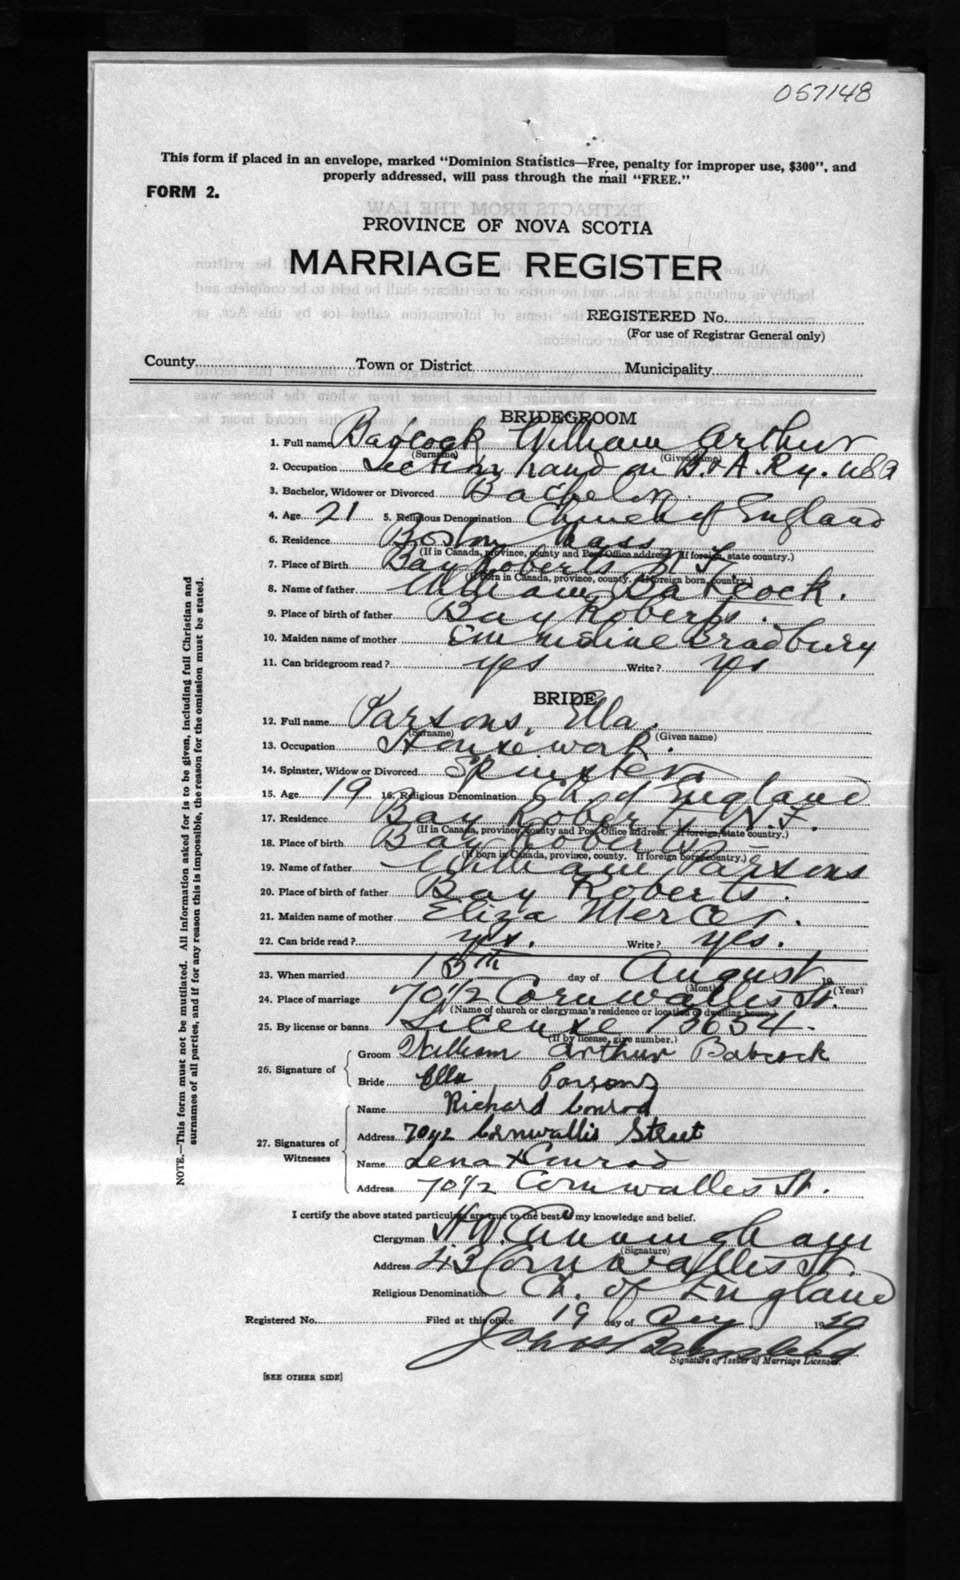 057148
This form if placed in an envelope, marked "Dominion Statistics—Free, penalty for improper use, $300", and
properly addressed, will pass through the mail "FREE."
FORM 2.
PROVINCE OF NOVA SCOTIA
MARRIAGE REGISTER
REGISTERED No.
(For use of Registrar General only)
County Town or District Municipality
BRIDEGROOM
1. Full name Babcock William Arthur
(Surname) (Given name)
2. Occupation Section hand on B. & A. Ry. USA
3. Bachelor, Widower or Divorced Bachelor
4. Age 21 5. Religious Denomination Church of England
6. Residence Boston Mass
(If in Canada, province, county and Post Office address. If foreign, state country.)
7. Place of Birth Bay Roberts N F.
(If born in Canada, province, county. If foreign born, country.)
8. Name of father William Babcock.
9. Place of birth of father Bay Roberts.
10. Maiden name of mother Emmeline Bradbury
11. Can bridegroom read? yes Write? yes
BRIDE
12. Full name Parsons, Ella.
(Surname) (Given name)
13. Occupation Housework.
14. Spinster, Widow or Divorced Spinster
15. Age 19 16. Religious Denomination Ch of England
17. Residence Bay Roberts N.F.
(If in Canada, province, county and Post Office address. If foreign, state country.)
18. Place of birth Bay Roberts
(If born in Canada, province, county. If foreign born, country.)
19. Name of father William Parsons
20. Place of birth of father Bay Roberts.
21. Maiden name of mother Eliza Mercer.
22. Can bride read? yes. Write? yes.
23. When married 15th day of August 19
(Month) (Year)
24. Place of marriage 70½ Cornwallis St.
(Name of church or clergyman's residence or location of dwelling house.)
25. By license or banns License 13654.
(If by license, give number.)
26. Signature of
Groom William Arthur Babcock
Bride Ella Parsons
27. Signatures of Witnesses
Name Richard Conrod
Address 70½ Cornwallis Street
Name Lena H Conrod
Address 70½ Cornwallis St.
I certify the above stated particulars are true to the best of my knowledge and belief.
Clergyman H W. Cunningham
(Signature)
Address 43 Cornwallis St.
Religious Denomination Ch. of England
Registered No. Filed at this office 19 day of Aug. 1929
Signature of Issuer of Marriage Licenses
[SEE OTHER SIDE]
NOTE.—This form must not be mutilated. All information asked for is to be given, including full Christian and
surnames of all parties, and if for any reason this is impossible, the reason for the omission must be stated.